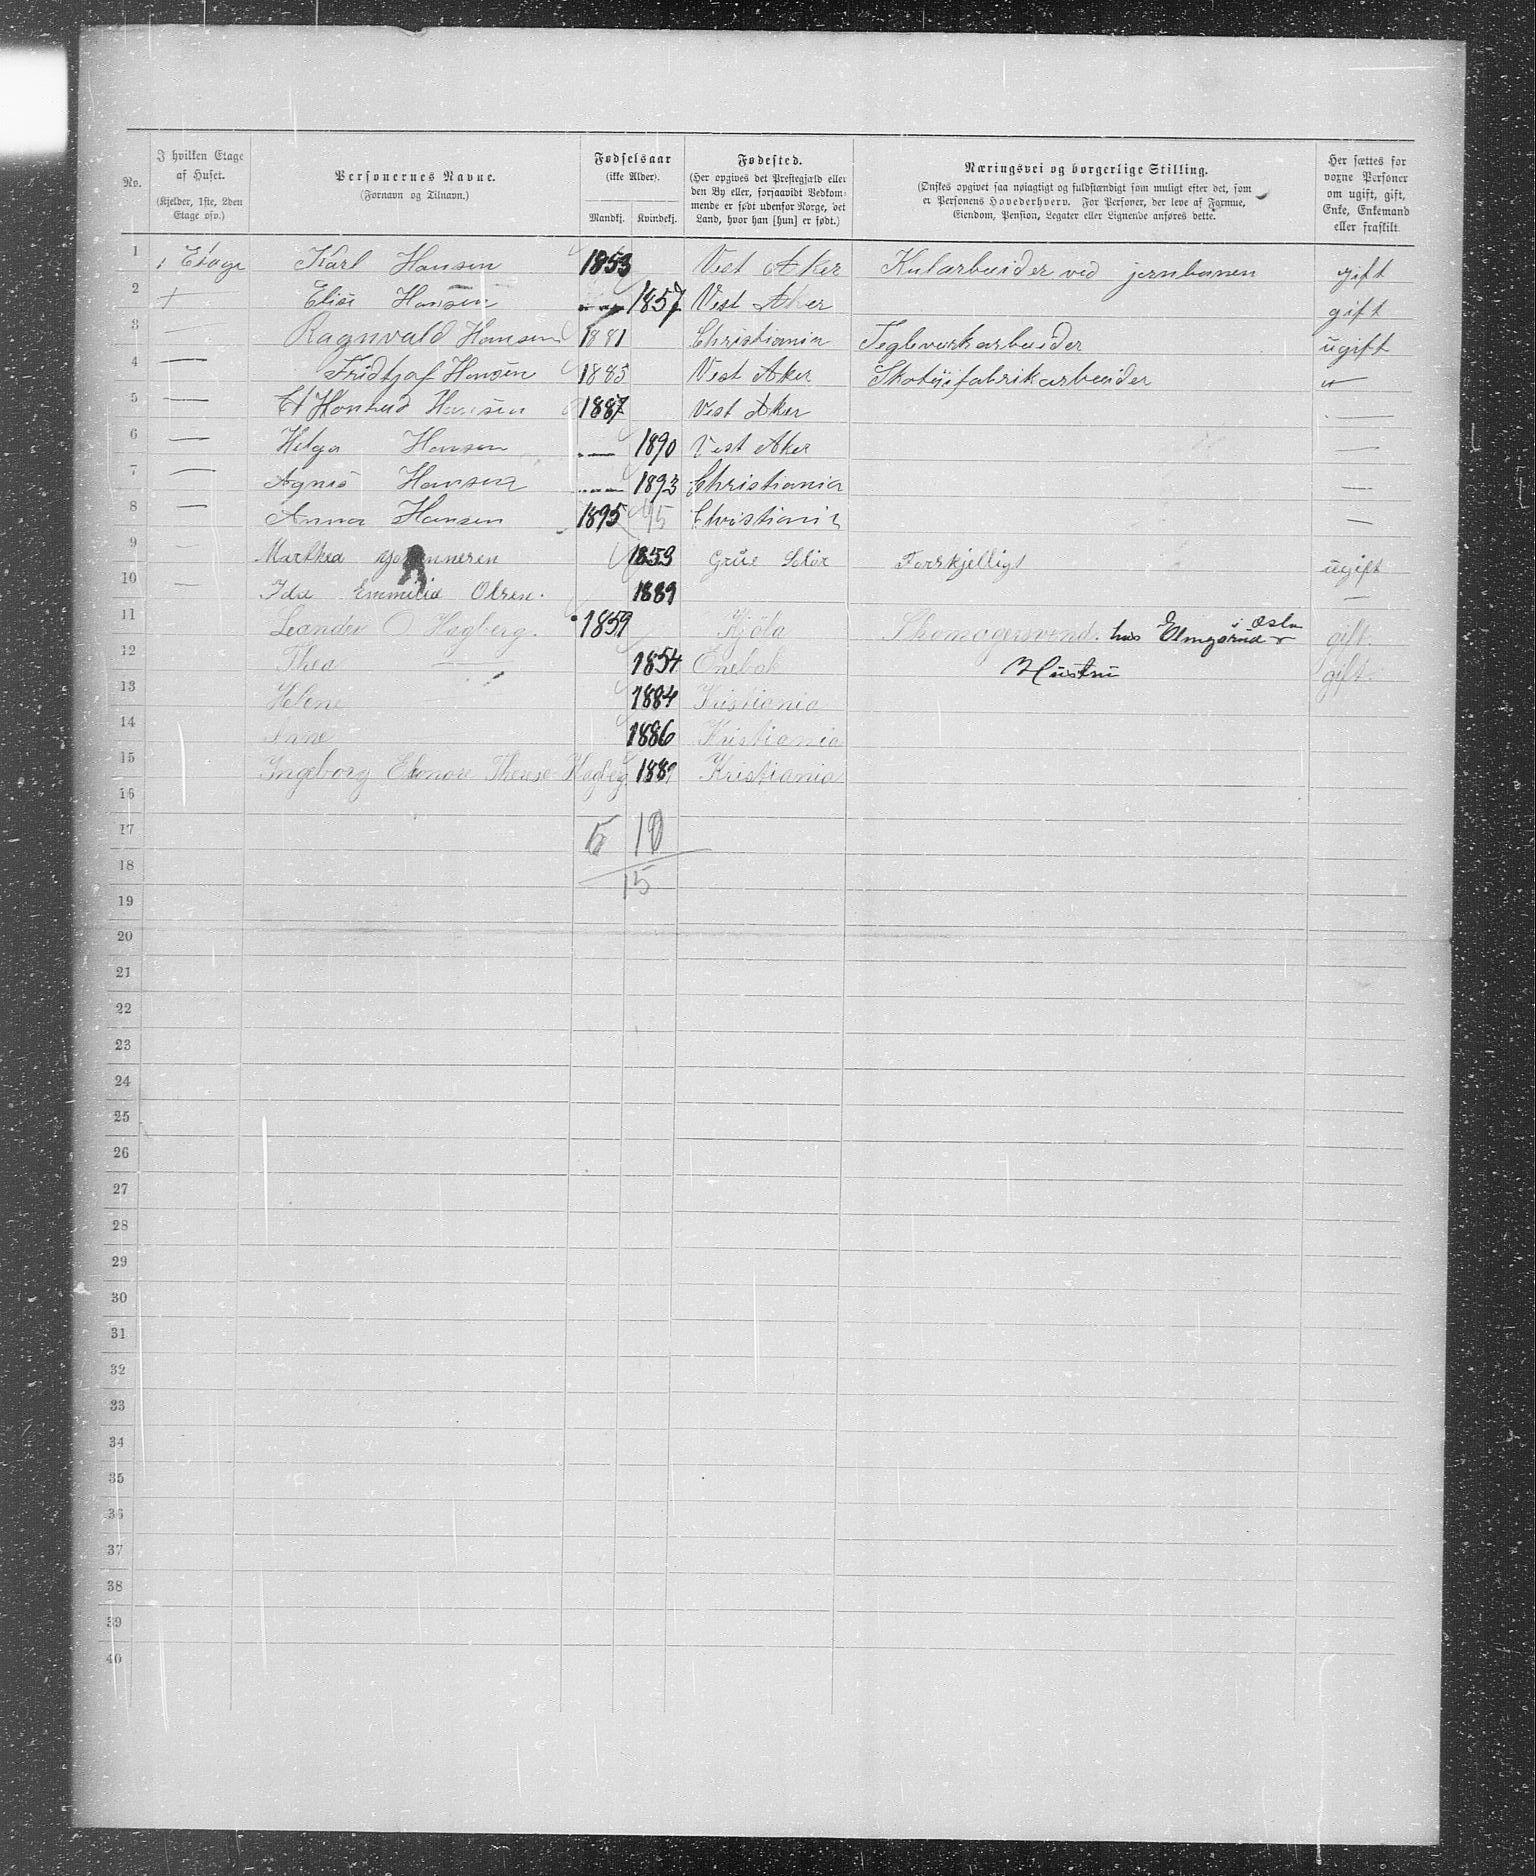 No. | I hvilken Etage af Huset. (Kjelder, 1ste, 2den Etage osv.) | Personernes Navne. (Fornavn og Tilnavn.) | Fødselsaar (ikke Alder). Mandkj. | Kvindekj. | Fødested. (Her opgives det Prestegjæld eller den By eller, forsaavidt Vedkommende er født udenfor Norge, det Land, hvor han [hun] er født.) | Næringsvei og borgerlige Stilling. (Ønskes opgivet saa nøiagtigt og fuldstændigt som muligt efter det, som er Personens Hovederhverv. For Personer, der leve af Formue, Eiendom, Pension, Legater eller Lignende anføres dette. | Her sættes for voxne Personer om ugift, gift, Enke, Enkemand eller fraskilt
1 | 1 Etage | Karl Hansen | 1853 | | Vest Aker | Kularbeider ved jernbanen | gift
2 | + | Elise Hansen | | 1857 | Vest Aker | | gift
3 | — | Ragnvald Hansen | 1881 | | Christiania | Teglverkarbeider | ugift
4 | — | Fridtjof Hansen | 1885 | | Vest Aker | Skotøifabrikarbeider | —
5 | — | Hansen | 1887 | | Vest Aker | | —
6 | — | Helga Hansen | — | 1890 | Vest Aker | | —
7 | — | Agnes Hansen | — | 1893 | Christiania | | —
8 | — | Anna Hansen | 1895 | 95 | Christiania | | —
9 | — | Marthea | | 1859 | Grue Solør | Forskjelligt | ugift
10 | — | Ida Emmilia Olsen. | | 1889 | | | —
11 | | Leander O Hagberg. | 1859 | | | Skomagersvend. hos Elmgsrud i Oslo | gift.
12 | | Thea — | | 1854 | Enebak | Hustru | gift.
13 | | Helene — | | 1884 | Kristiania
14 | | Anne — | | 1886 | Kristiania
15 | | Ingeborg Elonore Therese Hagberg | | 1889 | Kristiania
16
17 | | | 5 | 10
18 | | | 15
19
20
21
22
23
24
25
26
27
28
29
30
31
32
33
34
35
36
37
38
39
40